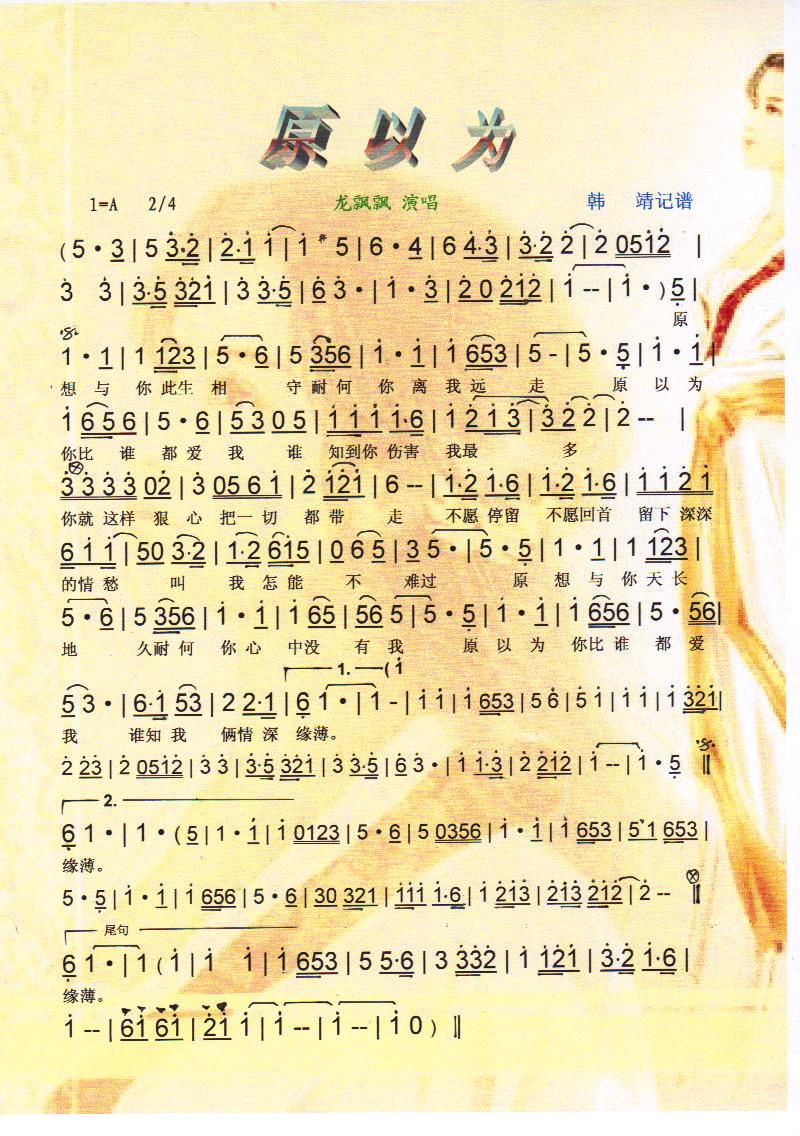 原以为
1=A 2/4 龙飘飘 演唱 韩 靖记谱
(5·3|5 3·2|2·1 1|1 5|6·4|6 4·3|3·2 2|2 0512|
3 3|3·5 321|3 3·5|6 3·|1·3|2 0 212|1--|1·)5|
原
1·1|1 123|5·6|5 356|1·1|1 653|5-|5·5|1·1|
想 与 你 此 生 相 守 耐 何 你 离 我 远 走 原 以 为
1 656|5·6|53 05|111 1·6|1 213|322|2--|
你比 谁 都 爱 我 谁 知到你 伤害 我最 多
3333 02|3 0561|2 121|6--|1·2 1·6|1·2 1·6|1121|
你就 这样 狠 心 把一切 都 带 走 不愿 停留 不愿回首 留下 深深
611|50 3·2|1·2 615|065|35·|5·5|1·1|1 123|
的情 愁 叫 我 怎 能 不 难过 原 想 与 你 天 长
5·6|5 356|1·1|1 65|56 5|5·5|1·1|1 656|5·56|
地 久耐 何 你 心 中没 有 我 原 以 为 你比 谁 都 爱
1. (1
53·|6·1 53|2 2·1|6 1·|1-|11|1 653|56|51|11|1 321|
我 谁知 我 俩情 深 缘薄。
2 23|2 0512|33|3·5 321|3 3·5|6 3·|1 1·3|2 212|1--|1·5‖
2.
6 1·|1·(5|1·1|1 0123|5·6|5 0356|1·1|1 653|5 1 653|
缘薄。
5·5|1·1|1 656|5·6|30 321|111 1·6|1 213|213 212|2--‖
尾句
6 1·|1(1|1 1|1 653|5 5·6|3 332|1 121|3·2 1·6|
缘薄。
1--|61 61|21 1|1--|1--|1 0)‖